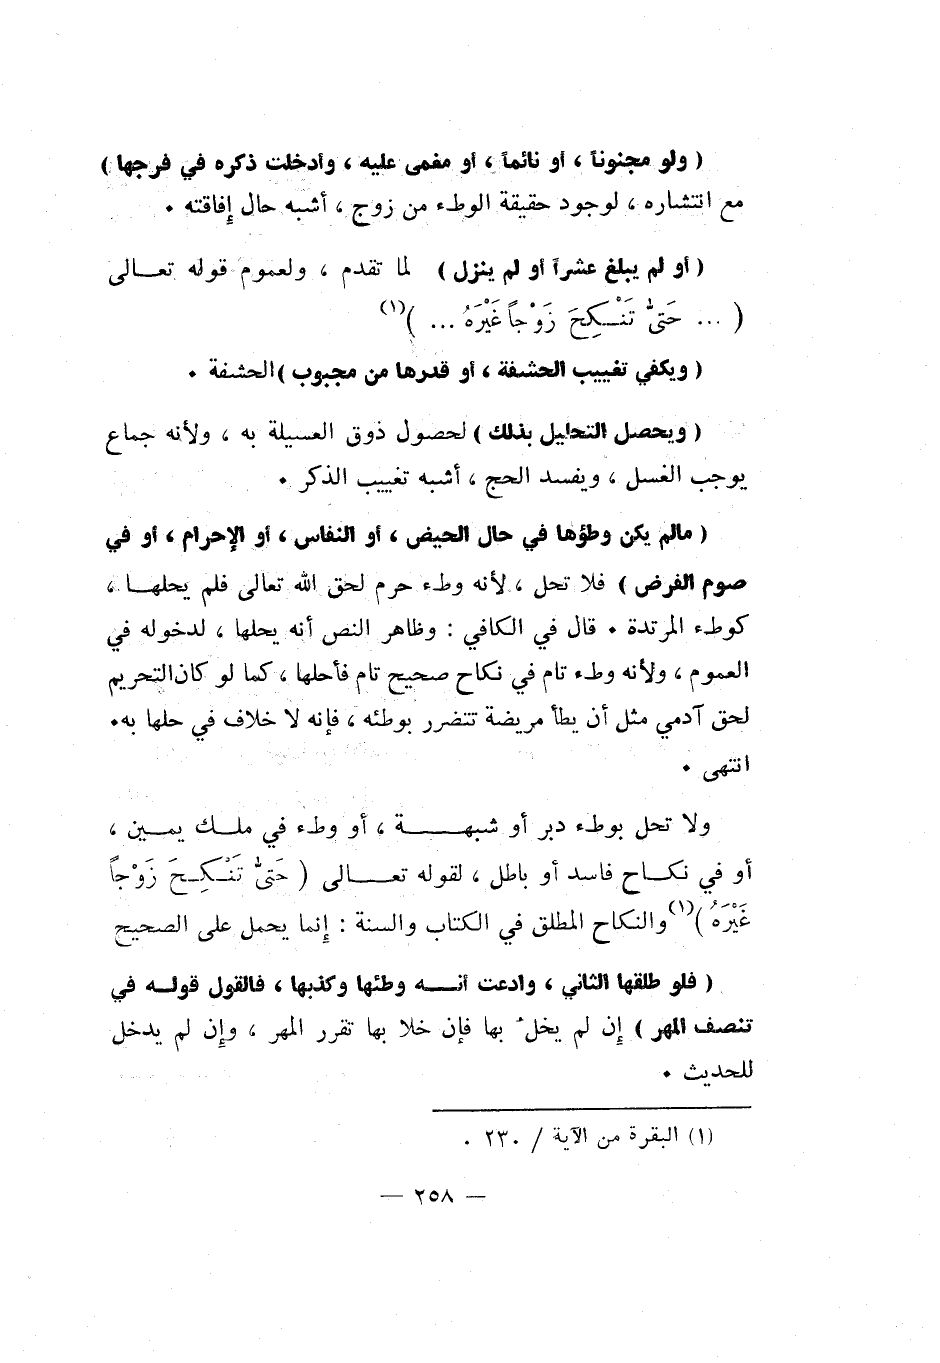 ( ولو مجنوناً ، أو نائماً ، أو مغمى عليه ، وأدخلت ذكره في فرجها )
مع انتشاره ، لوجود حقيقة الوطء من زوج ، أشبه حال إفاقته .
( أو لم يبلغ عشراً أو لم ينزل ) لما تقدم ، ولعموم قوله تعالى
( ... حَتَّى تَنْكِحَ زَوْجاً غَيْرَهُ ... )(١)
( ويكفي تغييب الحشفة ، أو قدرها من مجبوب ) الحشفة .
( ويحصل التحليل بذلك ) لحصول ذوق العسيلة به ، ولأنه جماع
يوجب الغسل ، ويفسد الحج ، أشبه تغييب الذكر .
( مالم يكن وطؤها في حال الحيض ، أو النفاس ، أو الإحرام ، أو في
صوم الفرض ) فلا تحل ، لأنه وطء حرم لحق الله تعالى فلم يحلها ،
كوطء المرتدة . قال في الكافي : وظاهر النص أنه يحلها ، لدخوله في
العموم ، ولأنه وطء تام في نكاح صحيح تام فأحلها ، كما لو كان التحريم
لحق آدمي مثل أن يطأ مريضة تتضرر بوطئه ، فإنه لا خلاف في حلها به .
انتهى .
ولا تحل بوطء دبر أو شبهة ، أو وطء في ملك يمين ،
أو في نكاح فاسد أو باطل ، لقوله تعالى ( حَتَّى تَنْكِحَ زَوْجاً
غَيْرَهُ )(١) والنكاح المطلق في الكتاب والسنة : إنما يحمل على الصحيح
( فلو طلقها الثاني ، وادعت أنه وطئها وكذبها ، فالقول قوله في
تنصف المهر ) إن لم يخلُ بها فإن خلا بها تقرر المهر ، وإن لم يدخل
للحديث .
(١) البقرة من الآية / ٢٣٠ .
— ٢٥٨ —